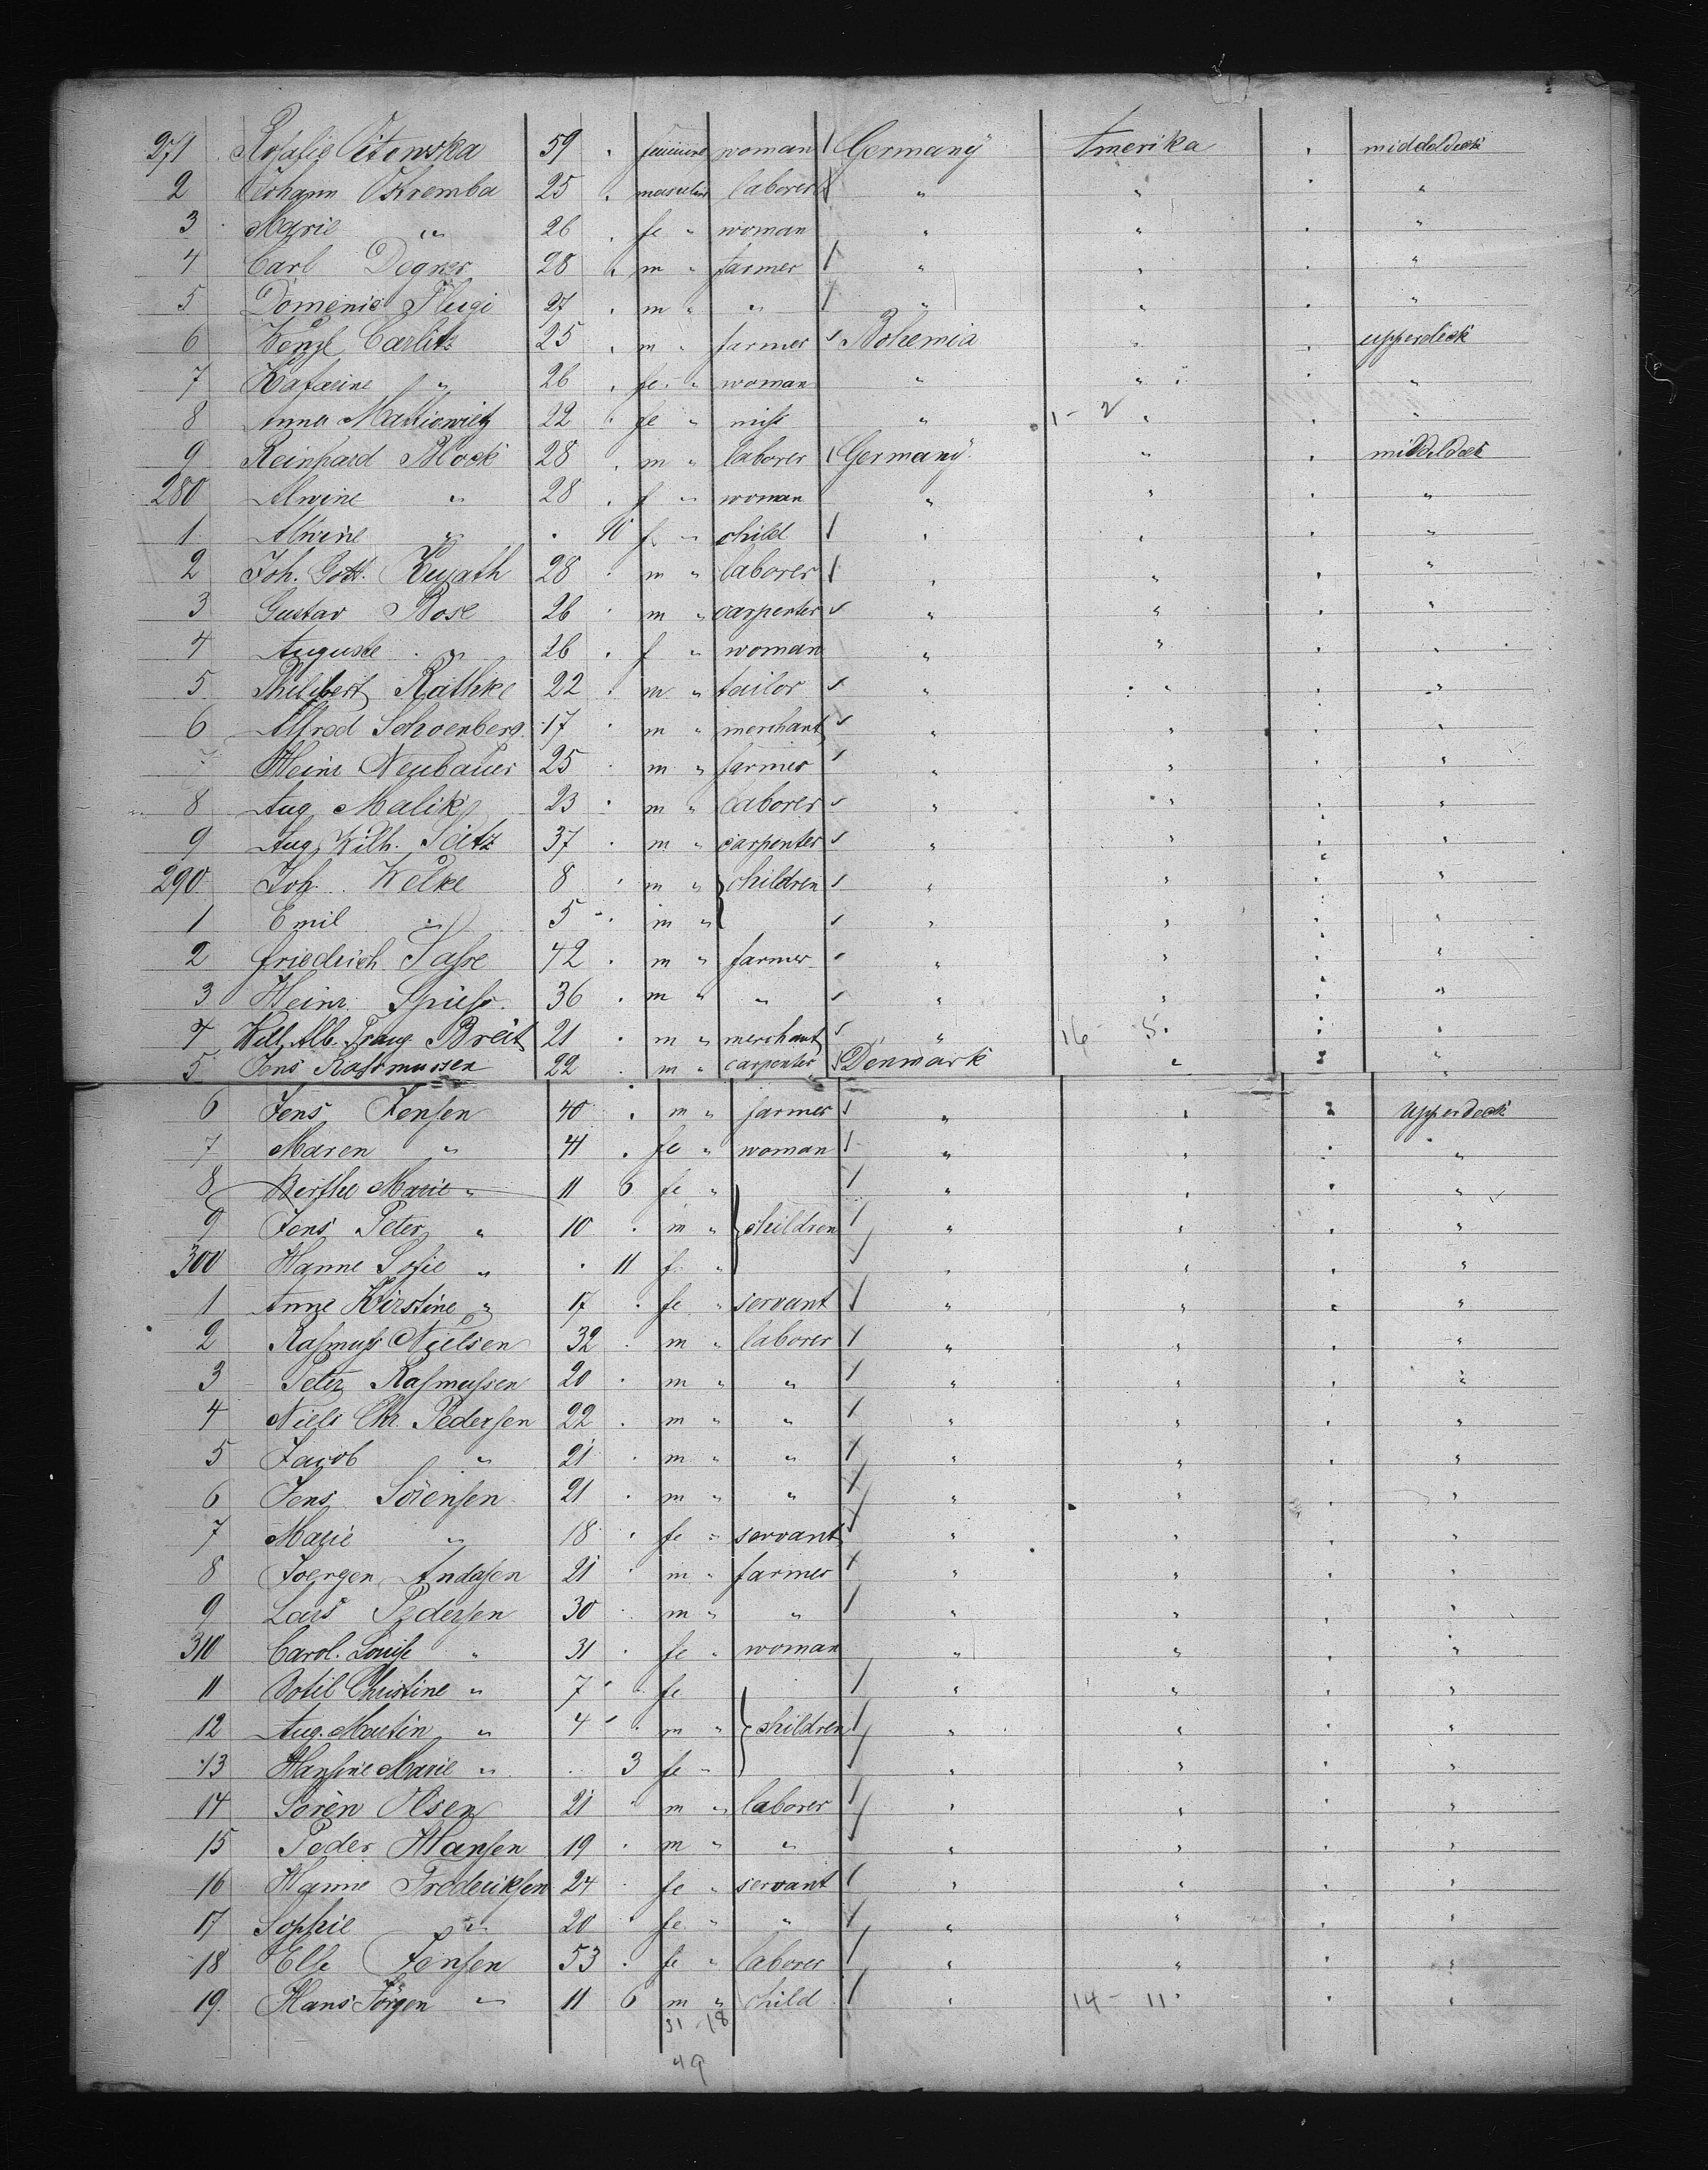 271 Rosalie Vitowska 59 . feminine woman Germany Amerika . middeldeck
2 Johann Okremba 25 . masculine laborer " " . "
3 Marie " 26 . fe " woman " " . "
4 Carl Degner 28 . m " farmer " " . "
5 Domenic Flugi 27 . m " " " " . "
6 Wenzl Carlitz 25 . m " farmer Bohemia " . upperdeck
7 Katarine " 26 . fe " woman " " . "
8 Anna 22 . fe " miss " 1 - 2 " . "
9 Reinhard Block 28 . m " laborer Germany " . middeldeck
280 Alwine " 28 . f " woman " " . "
1 Alwine " . 10 f " child " " . "
2 Joh. Gott. 28 . m " laborer " " . "
3 Gustav Bose 26 . m " carpenter " " . "
4 Auguste " 26 . f " woman " " . "
5 Philibert Rathke 22 . m " tailor " " . "
6 Alfred Schoenberg 17 . m " merchant " " . "
7 Heinr Neubauer 25 . m " farmer " " . "
8 Aug Malik 23 . m " laborer " " . "
9 Aug. Wilh. Seitz 37 . m " carpenter " " . "
290 Joh. Welke 8 . m " children " " . "
1 Emil " 5 . m " " " . "
2 Friedrich Sasse 42 . m " farmer " " . "
3 Heinr Spiess 36 . m " " " " . "
4 Alb. Breit 21 . m " merchant " 16 - 5 . "
5 Jens Rasmussen 22 . m " carpenter Denmark " . "
6 Jens Jensen 40 . m " farmer " " . upperdeck
7 Maren " 41 . fe " woman " " . "
8 Berthe Marie " 11 6 fe " " " . "
9 Jens Peter " 10 . m " children " " . "
300 Hanne Sofie " . 11 f " " " . "
1 Anne Kirstine " 17 . fe " servant " " . "
2 Rasmuss Nielsen 32 . m " laborer " " . "
3 Peter Rasmussen 20 . m " " " " . "
4 Niels Chr. Pedersen 22 . m " " " " . "
5 Jacob " 21 . m " " " " . "
6 Jens Sörensen 21 . m " " " " . "
7 Marie " 18 . fe " servant " " . "
8 Joergen Andasen 21 . m " farmer " " . "
9 Lars Pedersen 30 . m " " " " . "
310 Carol. Louise " 31 . fe " woman " " . "
11 Botil Christine " 7 . fe " " . "
12 Aug. Martin " 4 . m " children " " . "
13 Hansine Marie " . 3 fe " " " . "
14 Sören Olsen 21 . m " laborer " " . "
15 Peder Hansen 19 . m " " " " . "
16 Hanne Frederiksen 24 . fe " servant " " . "
17 Sophie " 20 . fe " " " " . "
18 Else Jensen 53 . fe " laborer " " . "
19 Hans Jörgen " 11 6 m " child " 14 - 11 . "
31 - 18
49